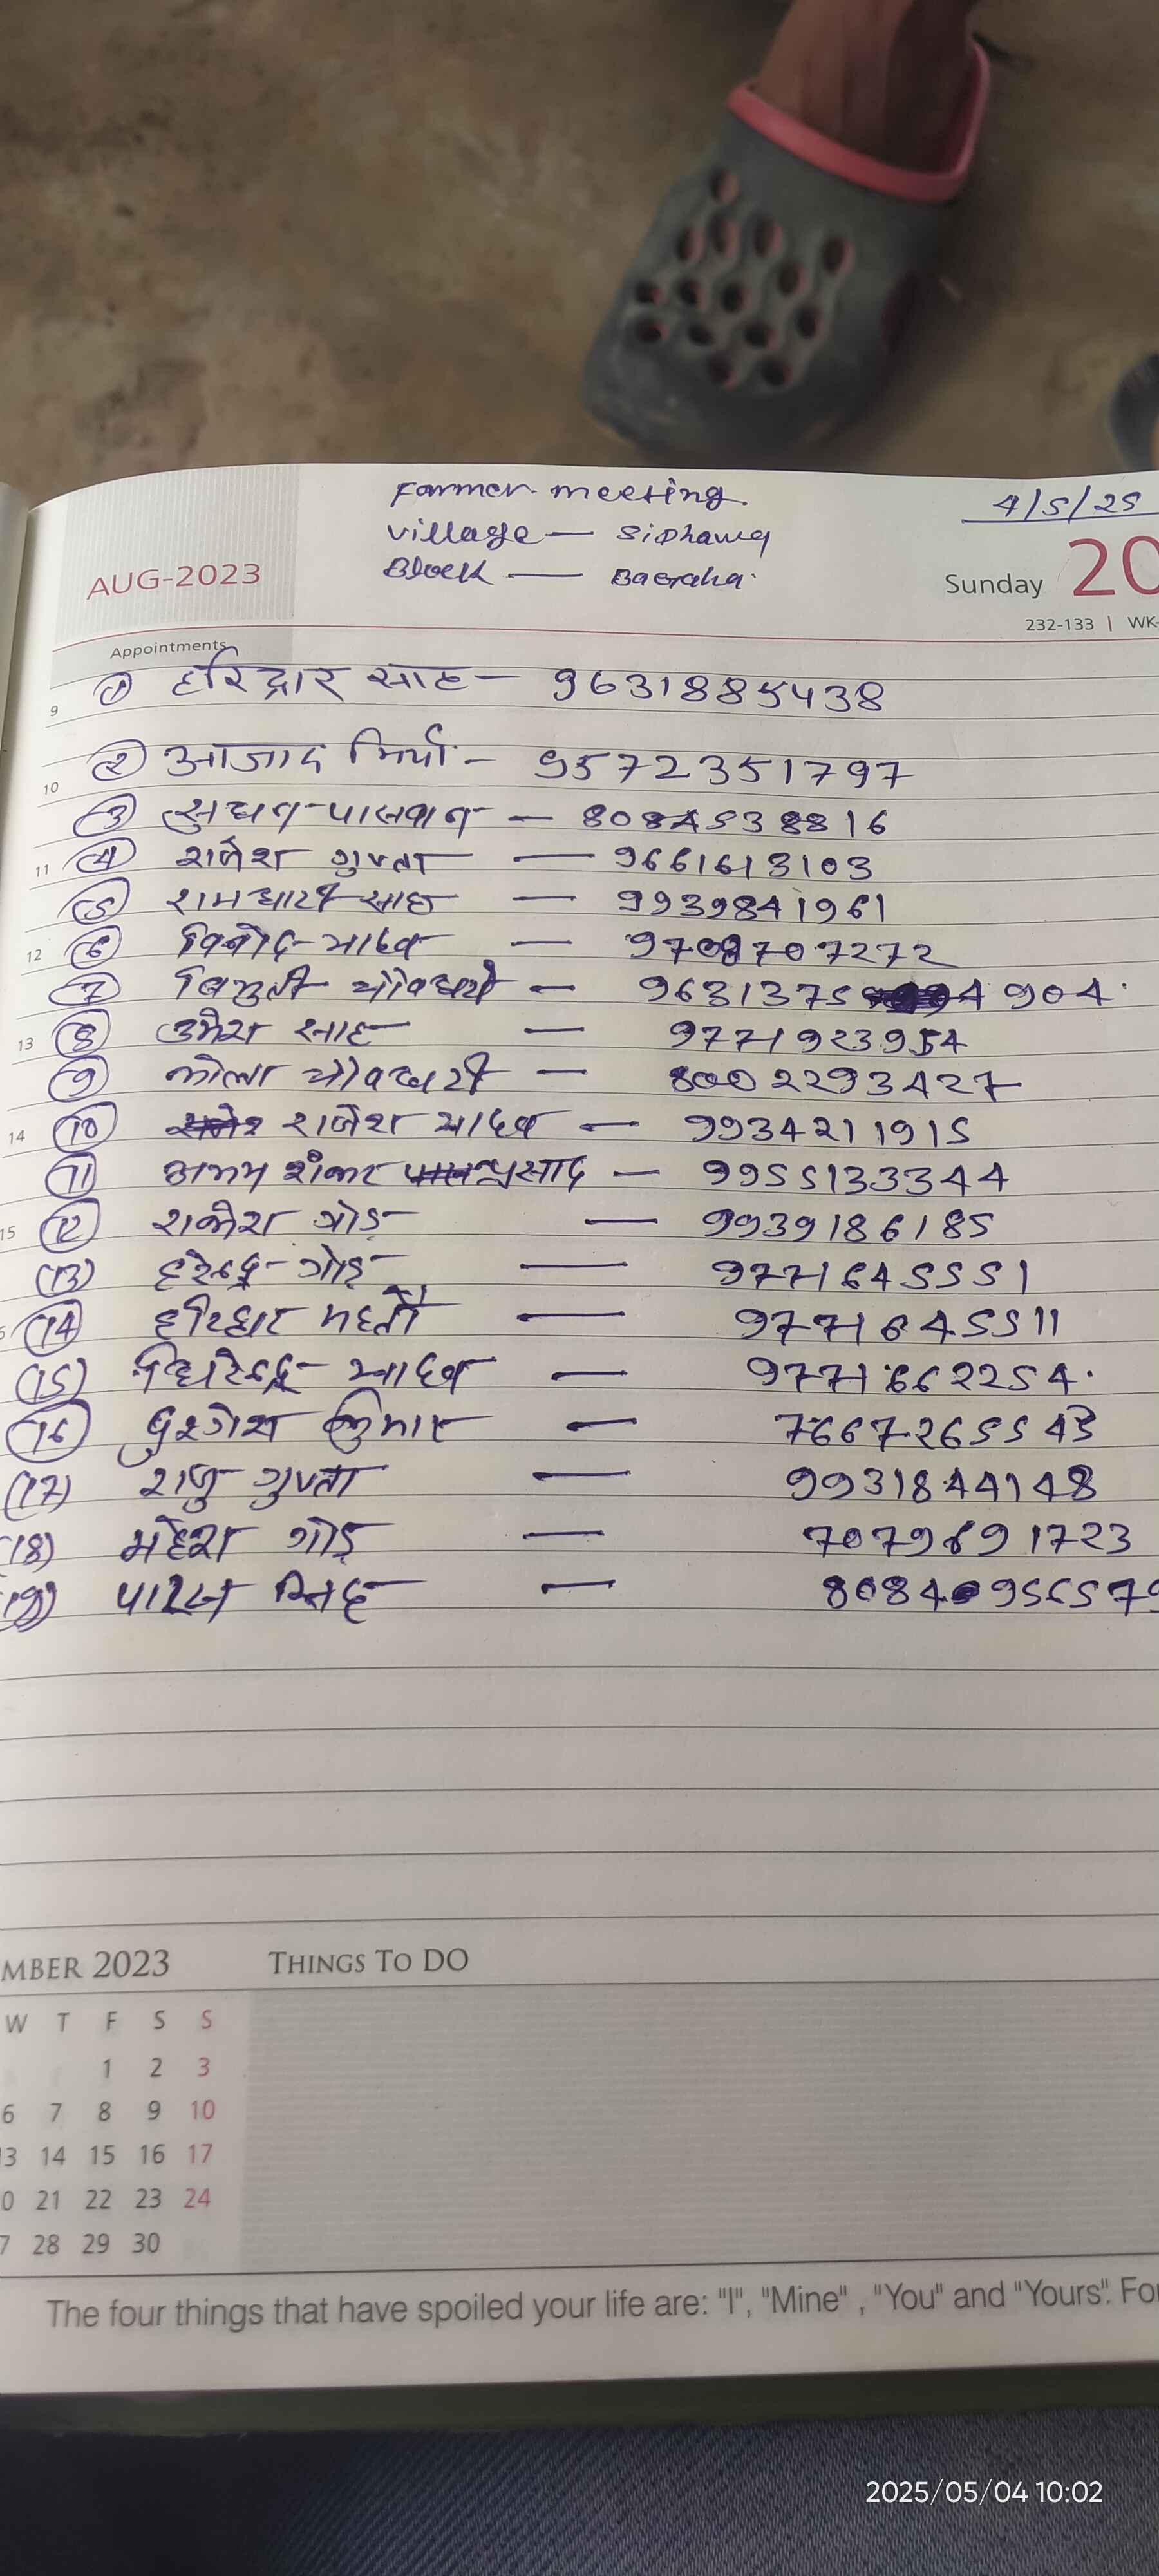 Farmer meeting
4/5/25
village — Sidhawa
Block — Bagaha
AUG-2023
Sunday 20
232-133 | WK-
Appointments
① हरिद्वार साह — 9631885438
9
② आजाद मियाँ — 9572351797
10
③ सुधन पासवान — 8084538816
11 ④ राजेश गुप्ता — 9661613103
⑤ रामधारी साह — 9939841961
12 ⑥ विनोद यादव — 9708707272
⑦ 9631375904
13 ⑧ उमेश साह — 9771923954
⑨ — 8002293427
14 ⑩ राजेश यादव — 9934211915
⑪ शंकर प्रसाद — 9955133344
15 ⑫ राकेश गोड़ — 9939186185
(13) हरेन्द्र गोड़ — 9771645551
⑭ हरिद्वार महतो — 9771645511
(15) यादव — 9771662254
⑯ कुमार —
(17) राजु गुप्ता — 9931844148
(18) महेश गोड़ — 7079691723
(19) पारस —
MBER 2023 THINGS TO DO
W T F S S
1 2 3
6 7 8 9 10
13 14 15 16 17
0 21 22 23 24
7 28 29 30
The four things that have spoiled your life are: "I", "Mine" , "You" and "Yours". Fo
2025/05/04 10:02